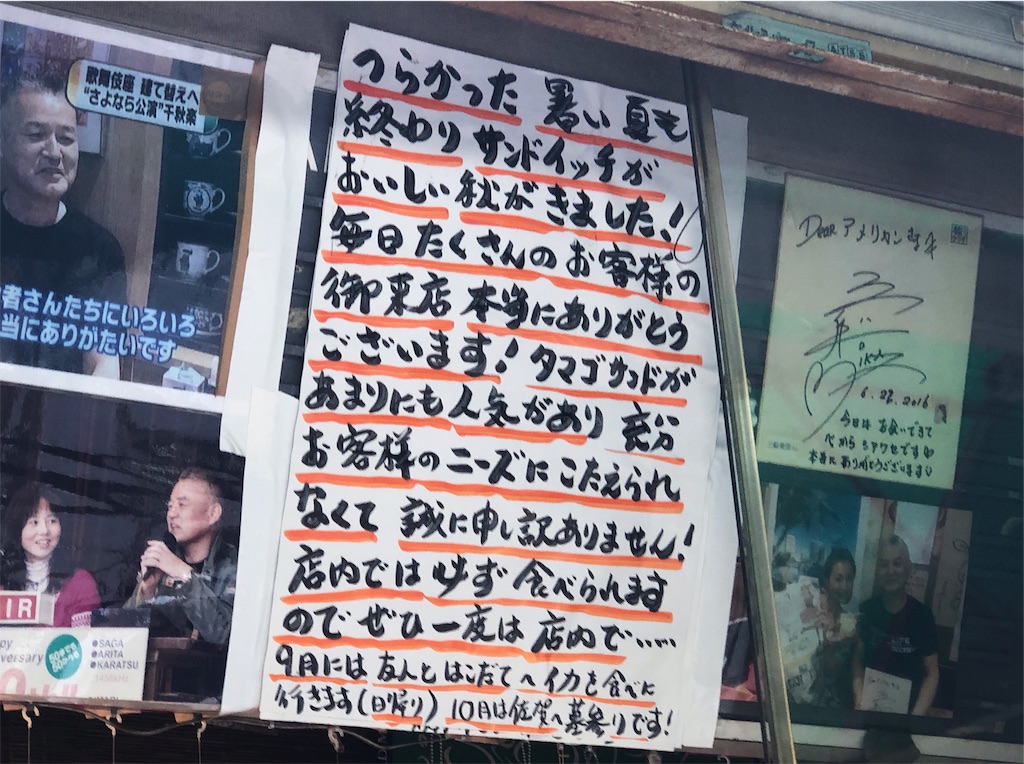 歌舞伎座 建て替えへ
"さよなら公演"千秋楽
者さんたちにいろいろ
当にありがたいです
SAGA
ARITA
KARATSU
つらかった 暑い夏も
終わり サンドイッチが
おいしい 秋が きました!
毎日 たくさんの お客様の
御来店 本当にありがとう
ございます! タマゴサンドが
あまりにも 人気があり 充分
お客様の ニーズに こたえられ
なくて 誠に申し訳ありません!
店内では 必ず 食べられます
ので ぜひ 一度は 店内で……
9月には 友人と はこだてへ イカを 食べに
行きます(日帰り) 10月は佐賀へ墓参りです!
Dear アメリカン
6.22.2016
今日は お会いできて
心から シアワセです♡
本当に ありがとうございます